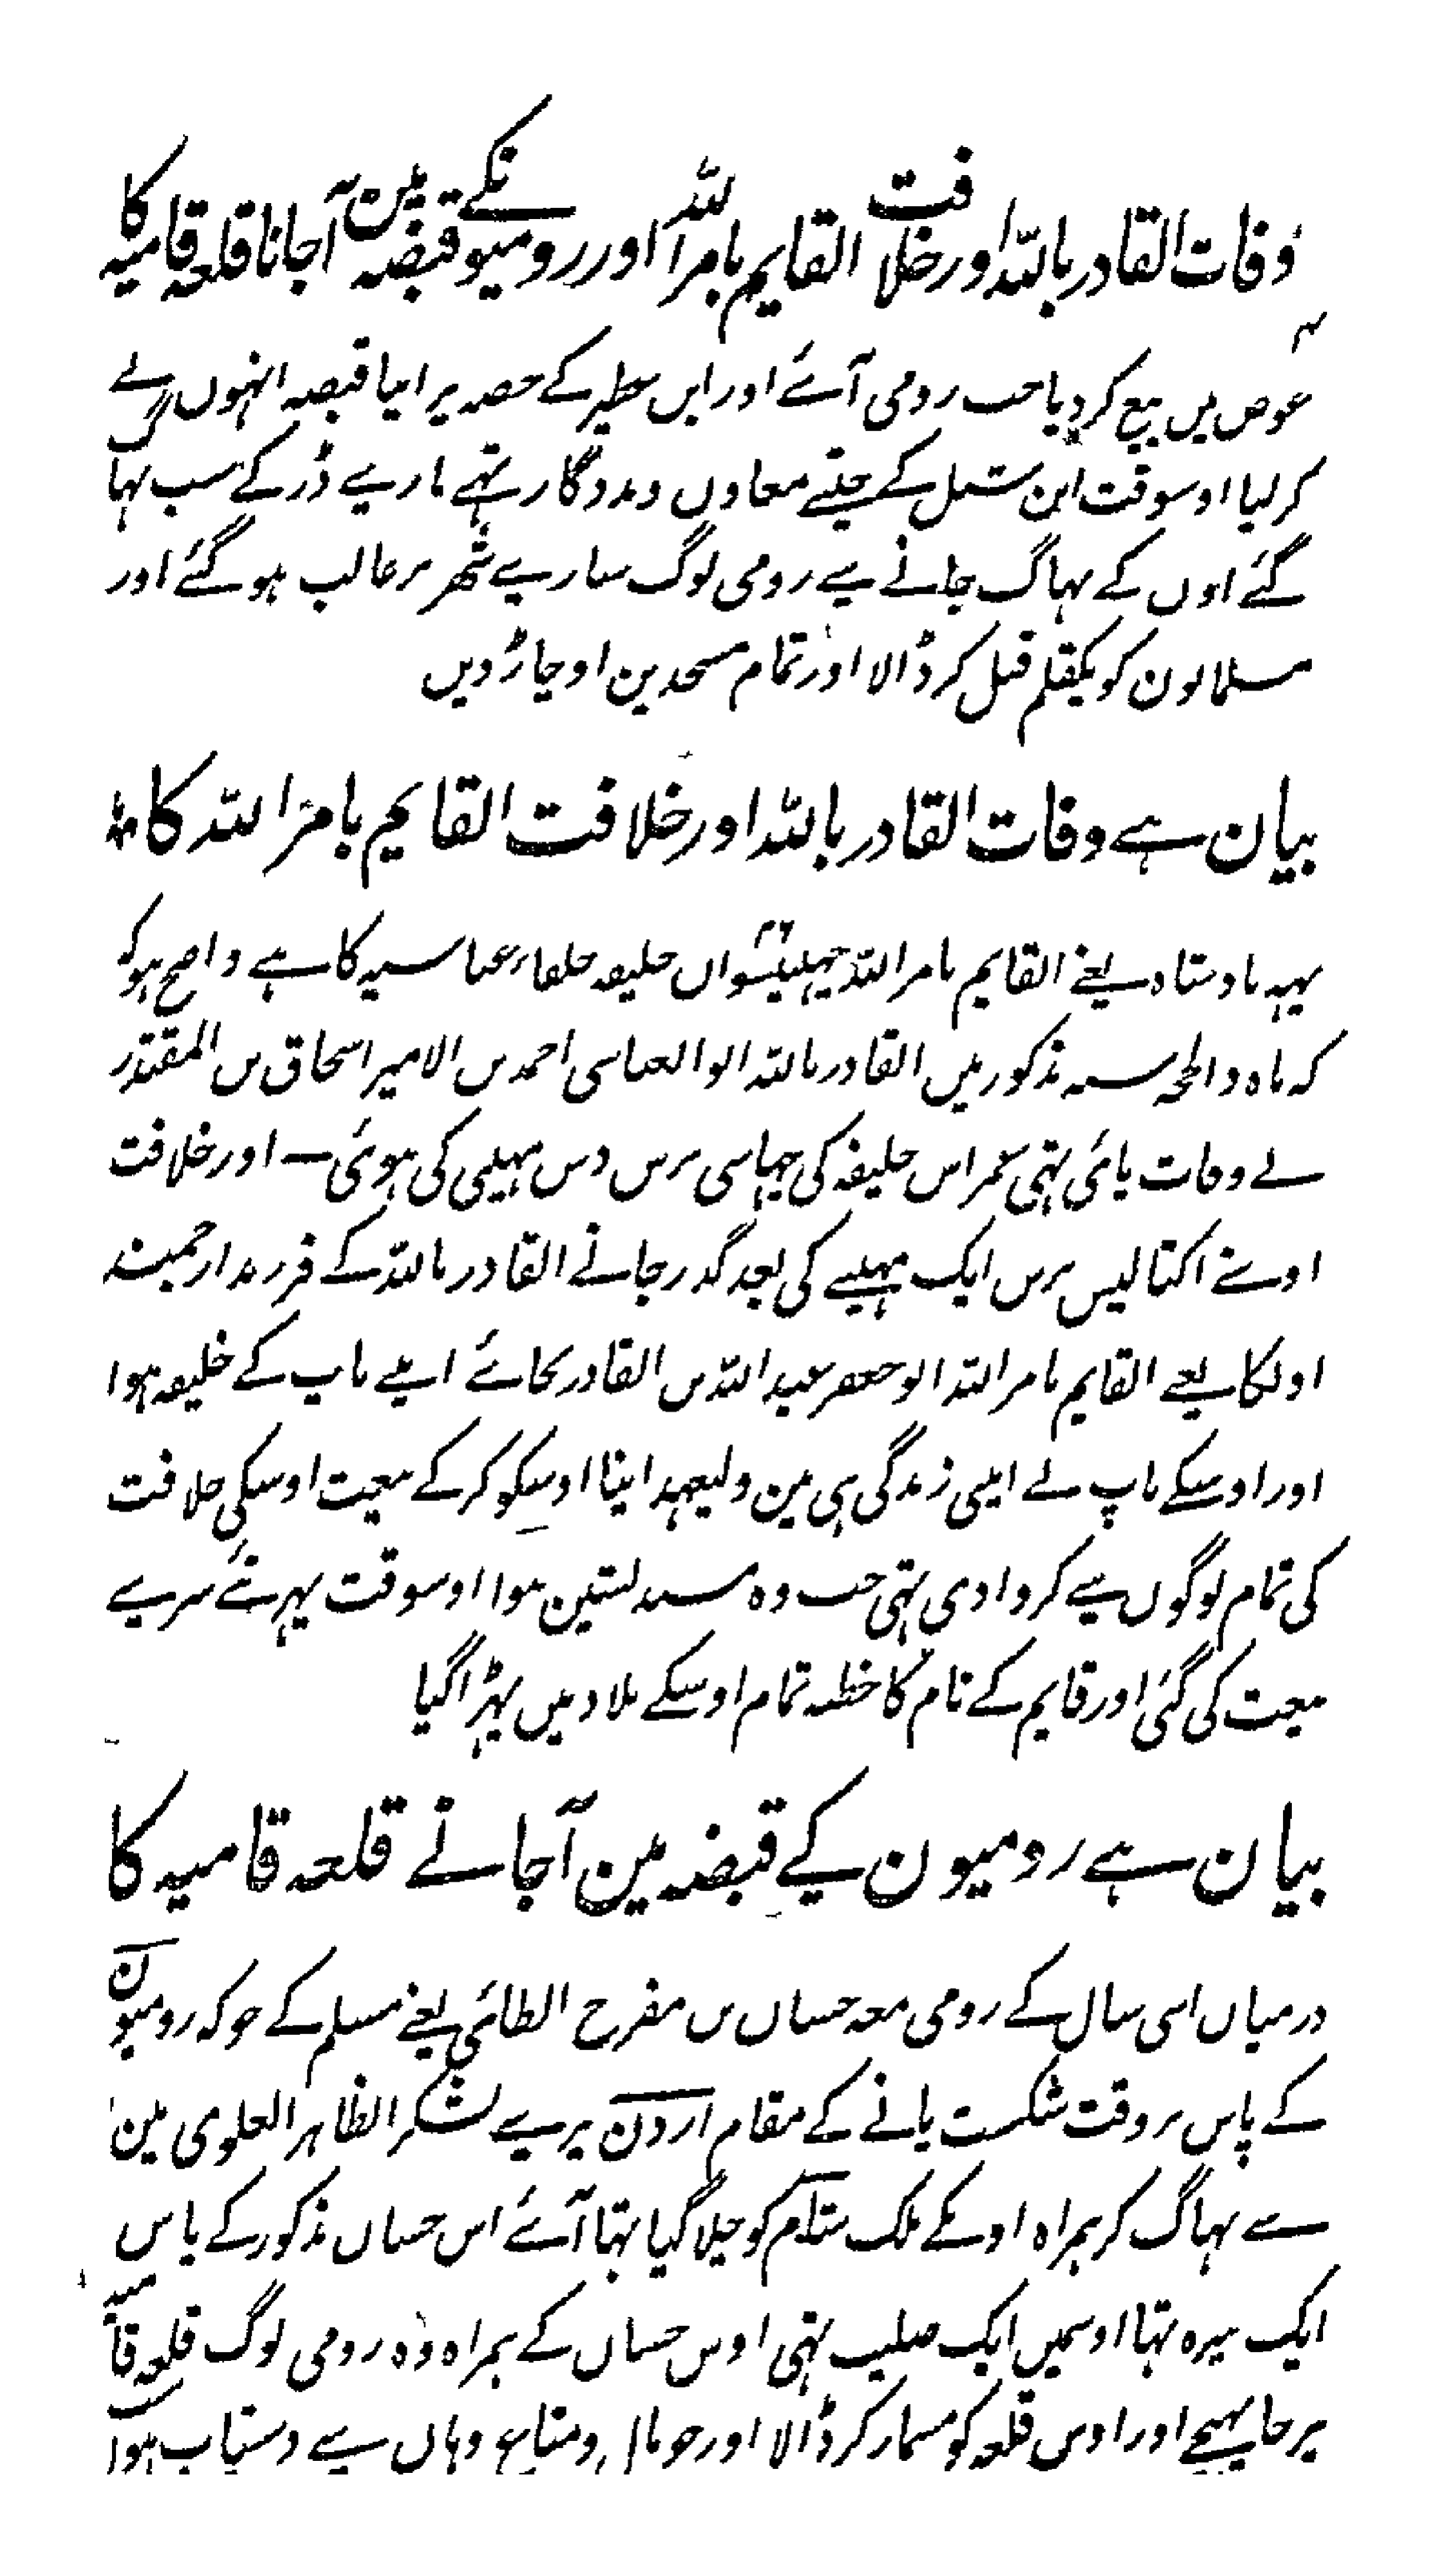 وفات القادر باللہ اور خلافت القایم بامر اللہ اور رومیونکے قبضہ مین آجانا قلعہ قامیہ کا
عوض میں بیع کر دیا جب رومی آئے اور ابن عطیر کے حصہ پر اپنا قبضہ انہوں نے
کر لیا اوسوقت ابن شبل کے جتنے معاون و مددگار تہے مارے ڈر کے سب بہاگ
گئے اون کے بہاگ جانے سے رومی لوگ سارے شہر پر غالب ہو گئے اور
مسلمانون کو یکقلم قتل کر ڈالا اور تمام مسجدین اوجاڑ دیں
بیان ہے وفات القادر باللہ اور خلافت القایم بامر اللہ کا
یہہ بادشاہ یعنے القایم بامر اللہ چہبیسواں خلیفہ خلفاء عباسیہ کا ہے واضح ہو کہ
کہ ماہ ذالحجہ سنہ مذکور میں القادر باللہ ابو العباسی احمد بن الامیر اسحاق بن المقتدر
نے وفات پائی تہی عمر اس خلیفہ کی چہاسی برس دس مہینی کی ہوئی — اور خلافت
اوسنے اکتالیس برس ایک مہینے کی بعد گذر جانے القادر باللہ کے فرزند ارجمند
اونکا یعنے القایم بامر اللہ ابو جعفر عبد اللہ بن القادر بجائے اپنے باپ کے خلیفہ ہوا
اور اوسکے باپ نے اپنی زندگی ہی مین ولیعہد اپنا اوسکو کر کے بیعت اوسکی خلافت
کی تمام لوگوں سے کروا دی تہی جب وہ مسند نشین ہوا اوسوقت پہر نئے سرے
بیعت کی گئی اور قایم کے نام کا خطبہ تمام اوسکے بلاد میں پہڑا گیا
بیان ہے رومیون کے قبضہ مین آجانے قلعہ قامیہ کا
درمیان اسی سال کے رومی معہ حسان بن مفرح الطائی یعنے مسلم کے جو کہ رومیون
کے پاس بروقت شکست پانے کے مقام اردن پر سے لشکر الظاہر العلوی مین
سے بہاگ کر ہمراہ اونکے ملک شام کو چلا گیا تہا آئے اس حسان مذکور کے پاس
ایک نیزہ تہا اوسمیں ایک صلیب تہی اوس حسان کے ہمراہ وہ رومی لوگ قلعہ قامیہ
پر جا پہنچے اور اوس قلعہ کو مسمار کر ڈالا اور جو مال و متاع وہاں سے دستیاب ہوا